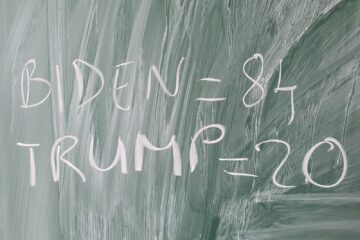 BIDEN = 84
TRUMP = 20